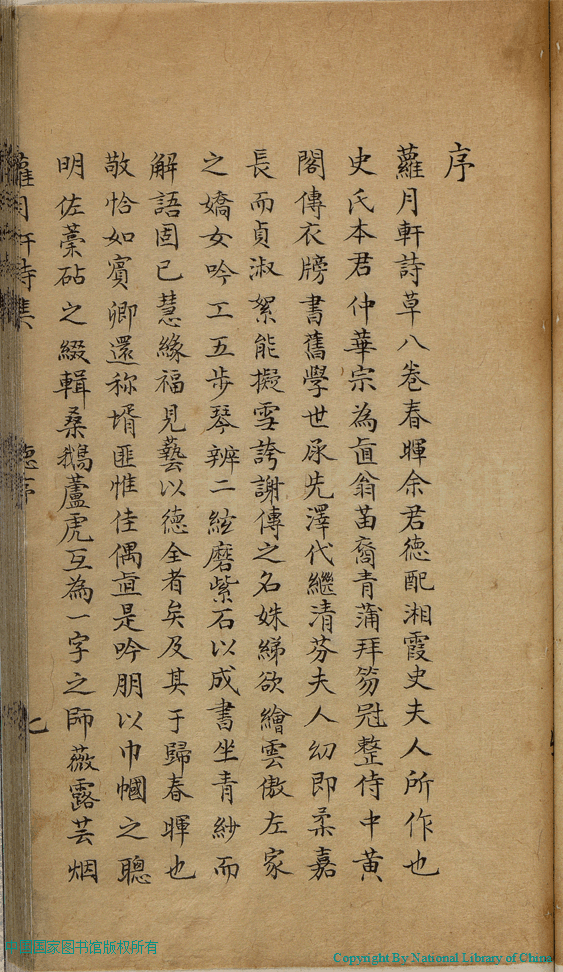 序
蘿月軒詩草八卷春暉余君德配湘霞史夫人所作也
史氏本君仲華宗為直翁苗裔青蒲拜笏冠整侍中黃
閣傳衣牓書舊學世承先澤代繼清芬夫人幼即柔嘉
長而貞淑絮能擬雪誇謝傳之名姝綈欲繪雲傲左家
之嬌女吟工五步琴辨二絃磨紫石以成書坐青紗而
解語固已慧緣福見藝以德全者矣及其于歸春暉也
敬恰如賓卿還称壻匪惟佳偶直是吟朋以巾幗之聰
明佐藁砧之綴輯桑鵝蘆虎互為一字之師薇露芸烟
蘿月軒詩集 德序 七
中国国家图书馆版权所有
Copyright By National Library of China